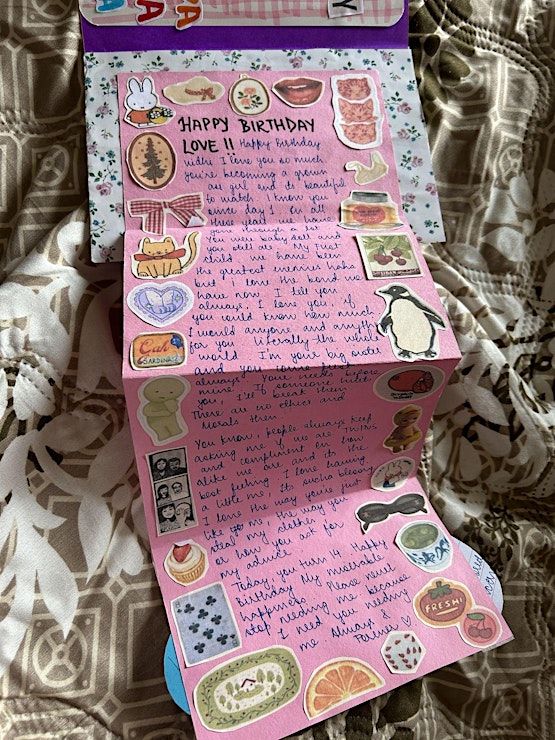 HAPPY BIRTHDAY
LOVE !! Happy Birthday
I love you so much
you're becoming a grown
ass girl and its beautiful
to watch. I know you
since day 1 in all
these years we have
gone through a lot
You were baby doll and
you still are. My first
child. we have been
the greatest enemies haha
but I love the bond we
have now. I tell you
always. I love you, if
you could know how much
I would anyone and anything
for you literally the whole
world I'm your big sister
and you come first
always. Your needs before
mine. If someone hurts
you, I'll beat them
There are no others and
morals then.
You know, people always keep
asking me if we are twins
and compliment on how
alike we are and its the
best feeling. I love having
a little me, its such a blessing
I love the way you're just
like me, the way you
steal my clothes,
or how you ask for
my advice
Today, you turn 14. Happy
Birthday My miserable
happiness. Please never
stop needing me because
I need you needing
me Always &
Forever ♡
Cali
SARDINAS
FRESH!